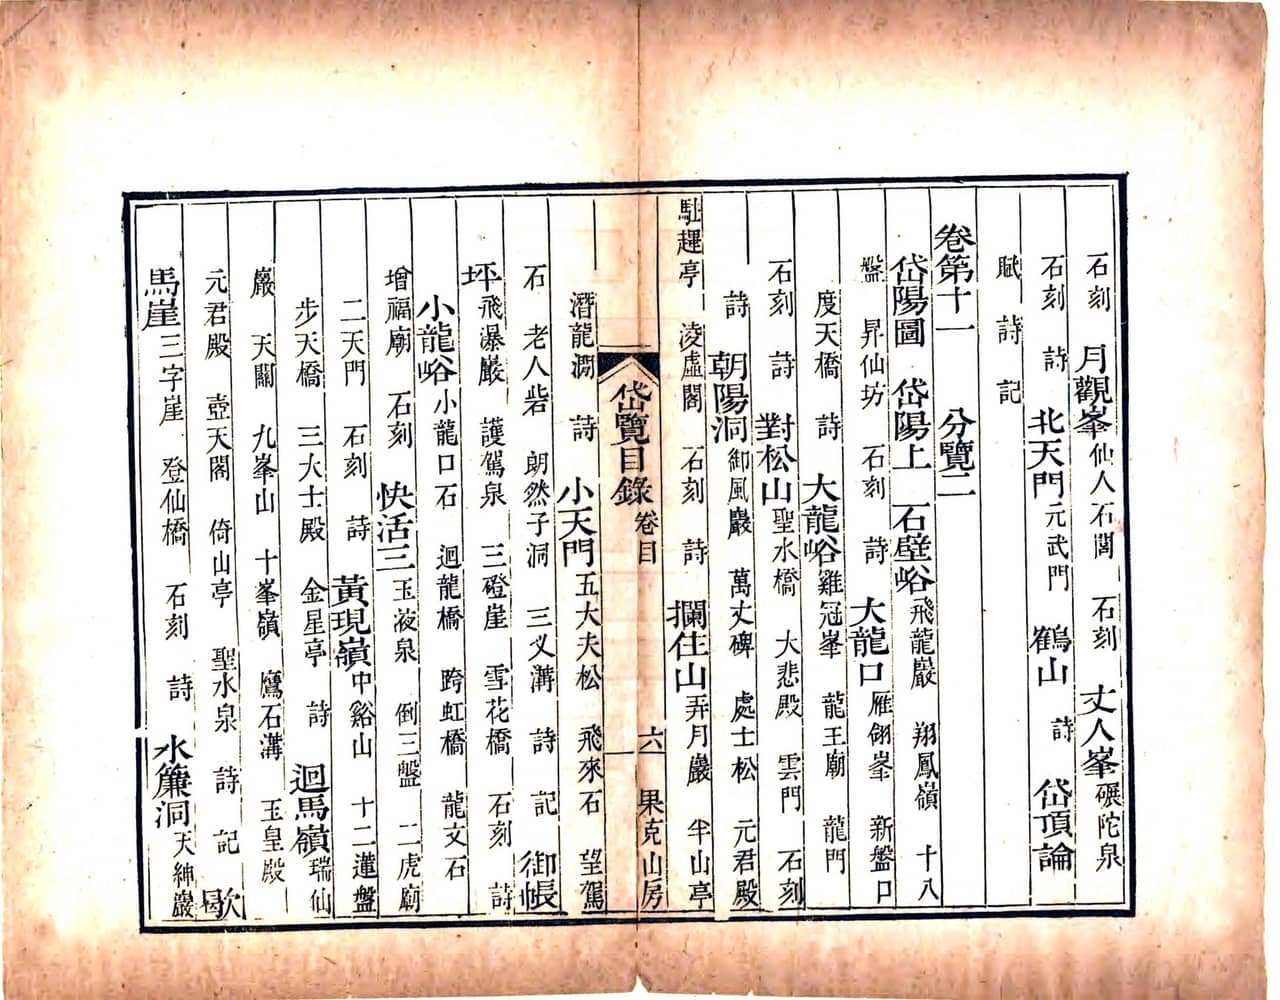 石刻　月觀峯仙人石閭　石刻　丈人峯碾陀泉
石刻　詩　北天門元武門　鶴山　詩　岱頂論
賦　詩　記
卷第十一　分覽二
岱陽圖　岱陽上　石壁峪飛龍巖　翔鳳嶺　十八
盤　昇仙坊　石刻　詩　大龍口雁翎峯　新盤口
度天橋　詩　大龍峪雞冠峯　龍王廟　龍門
石刻　詩　對松山聖水橋　大悲殿　雲門　石刻
詩　朝陽洞御風巖　萬丈碑　處士松　元君殿
駐蹕亭　淩虛閣　石刻　詩　攔住山弄月巖　半山亭
岱覽目錄　卷目　六　果克山房
潛龍澗　詩　小天門五大夫松　飛來石　望駕
石　老人砦　朗然子洞　三义溝　詩　記　御帳
坪飛瀑巖　護駕泉　三磴崖　雪花橋　石刻　詩
小龍峪小龍口石　迴龍橋　跨虹橋　龍文石
增福廟　石刻　快活三玉液泉　倒三盤　二虎廟
二天門　石刻　詩　黃現嶺中谿山　十二蓮盤
步天橋　三大士殿　金星亭　詩　迴馬嶺瑞仙
巖　天關　九峯山　十峯嶺　鷹石溝　玉皇殿
元君殿　壺天閣　倚山亭　聖水泉　詩　記　歇
馬崖三字崖　登仙橋　石刻　詩　水簾洞天紳巖